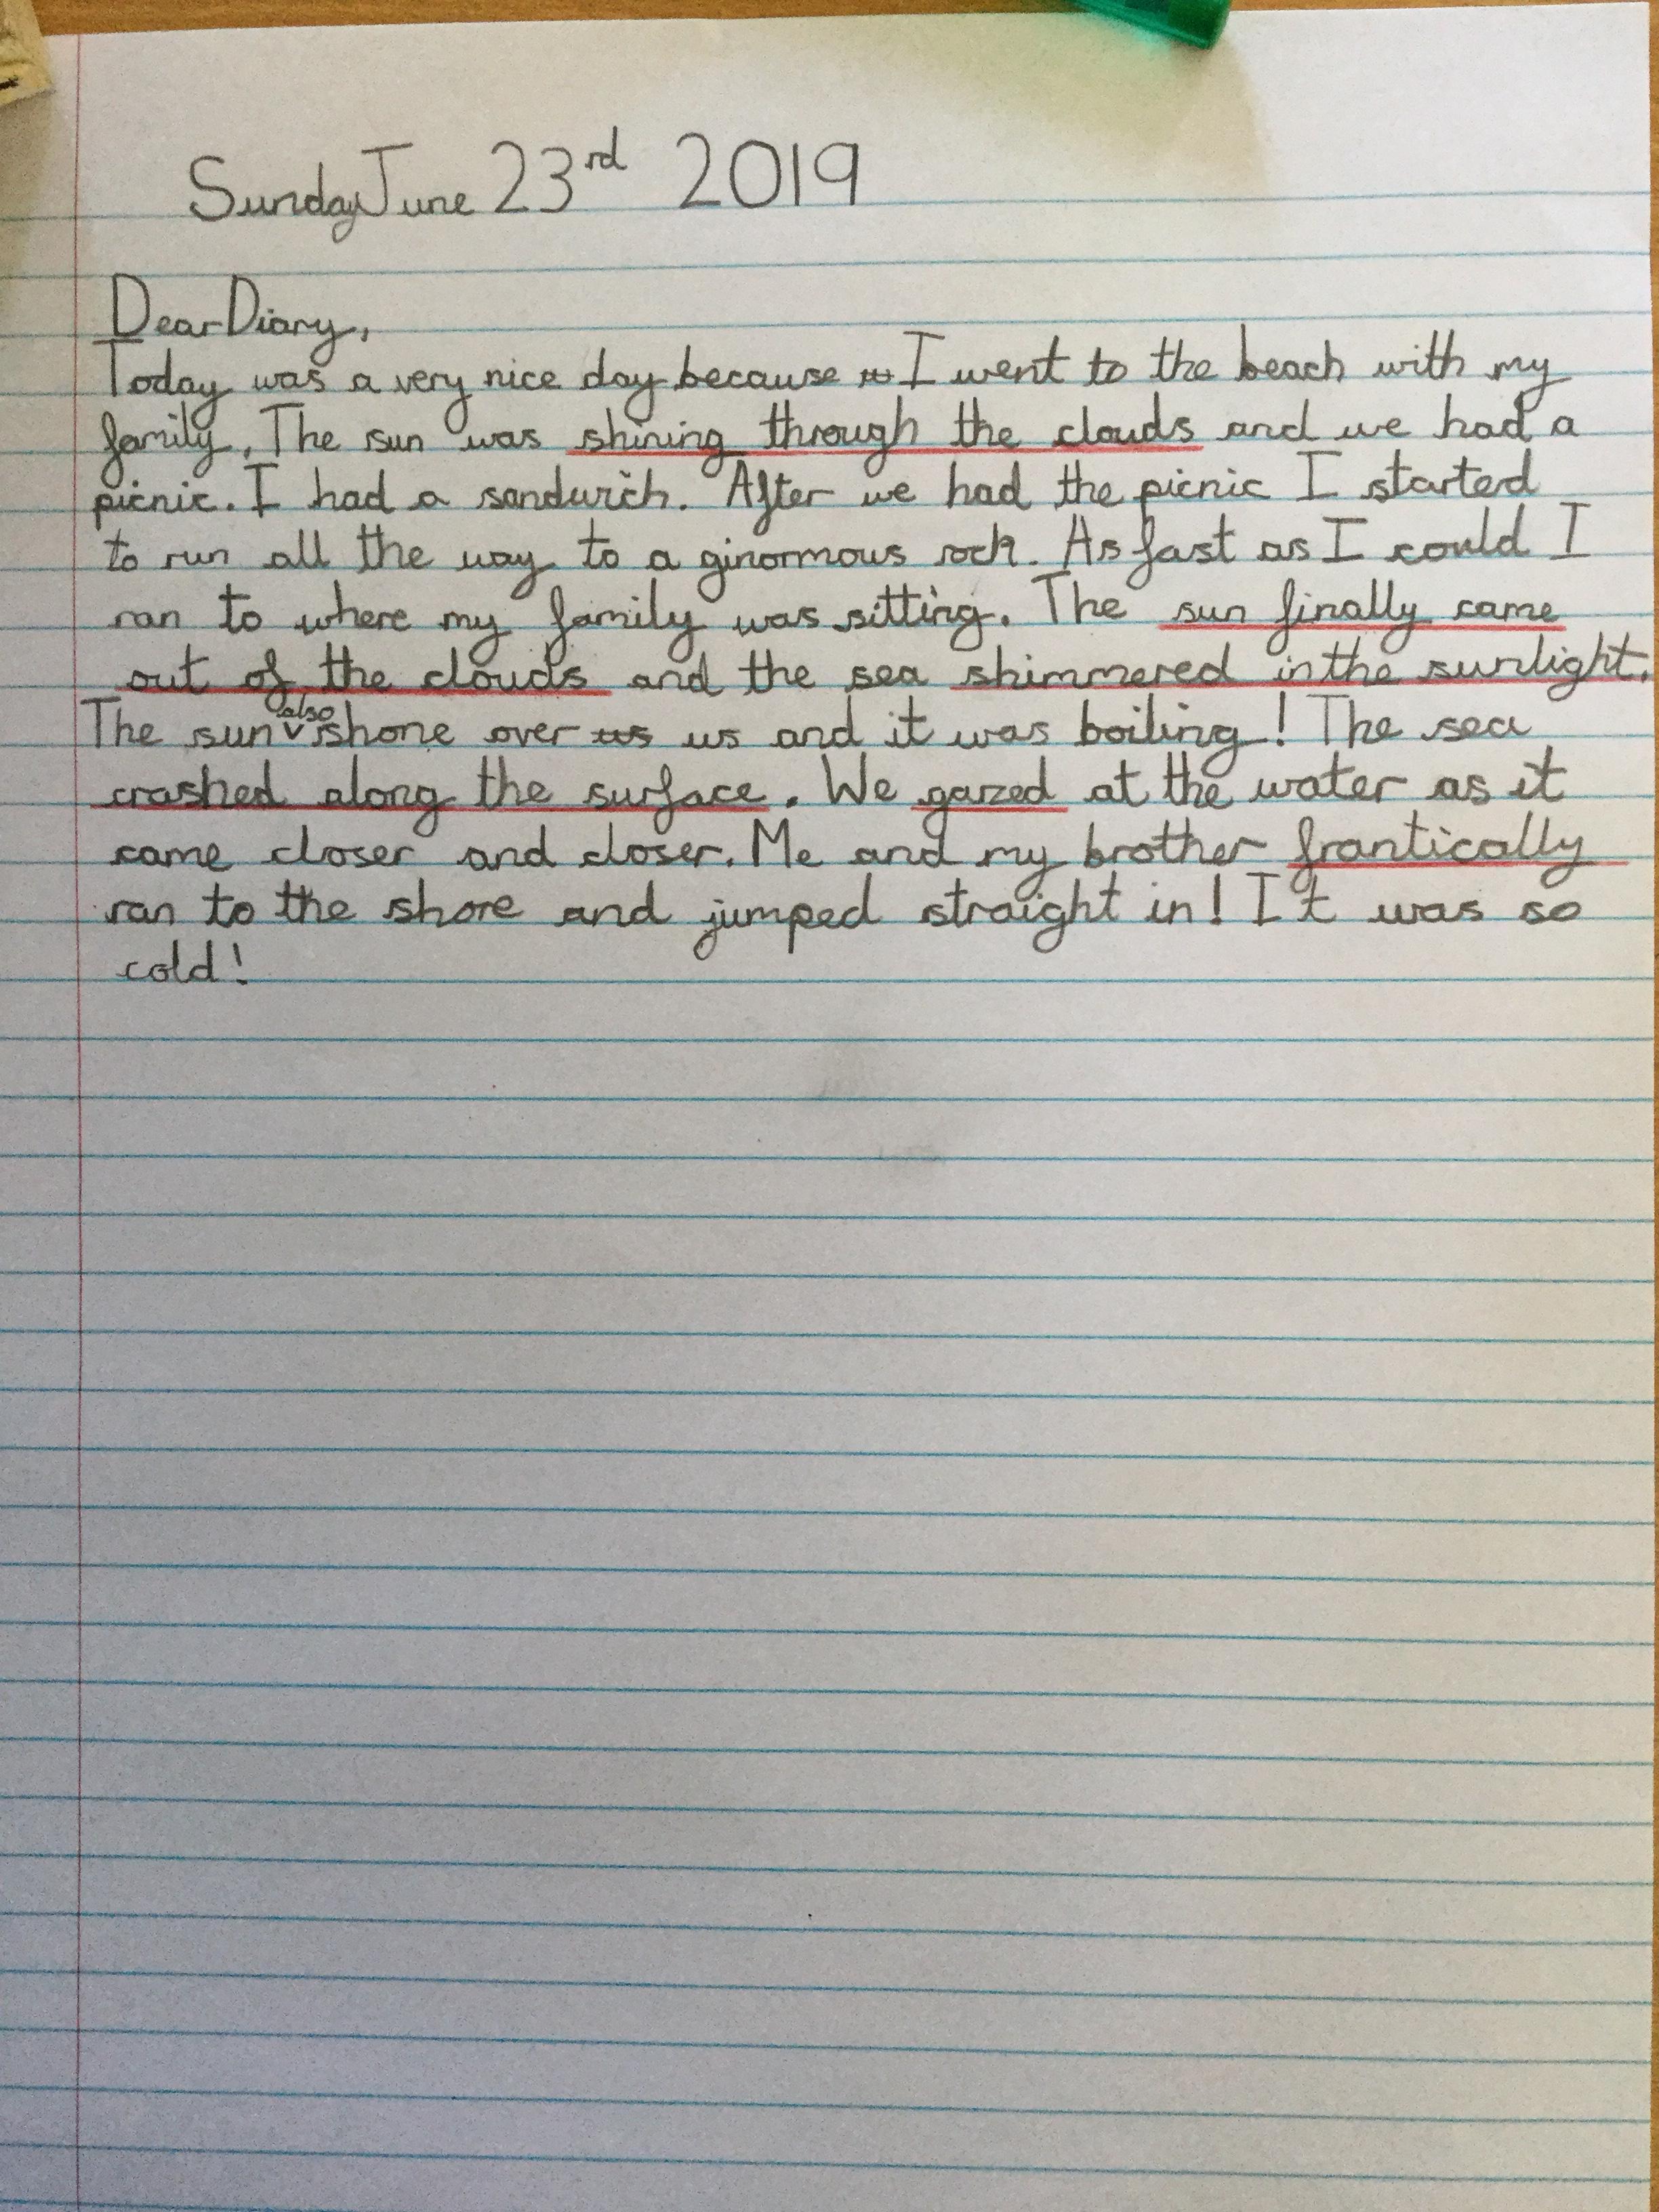 Sunday June 23rd 2019
Dear Diary,
Today was a very nice day because I went to the beach with my
family. The sun was shining through the clouds and we had a
picnic. I had a sandwich. After we had the picnic I started
to run all the way to a ginormous rock. As fast as I could I
ran to where my family was sitting. The sun finally came
out of the clouds and the sea shimmered in the sunlight.
The sun also shone over us us and it was boiling! The sea
crashed along the surface. We gazed at the water as it
came closer and closer. Me and my brother frantically
ran to the shore and jumped straight in! It was so
cold!